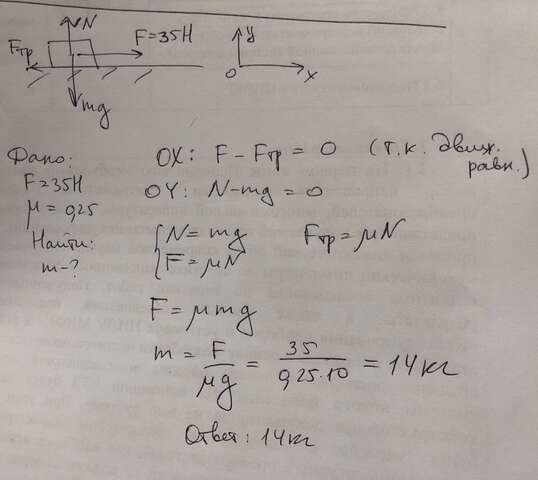 N
Fтр
F=35H
y
O
x
mg
Дано:
F=35H
μ = 0,25
Найти:
m-?
OX: F - Fтр = 0 (т.к. движ. равн.)
OY: N-mg = 0
{ N = mg
F = μN
Fтр = μN
F = μmg
m = F/μg = 35/0,25·10 = 14кг
Ответ: 14кг